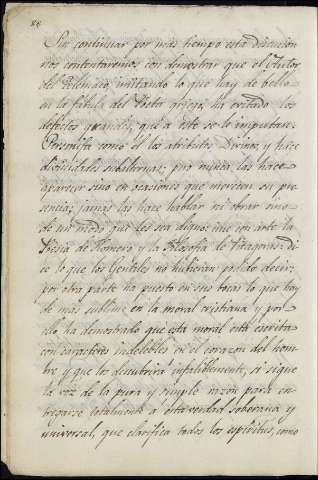 88
Sin continuar por mas tiempo esta discucion
nos contentaremos con demostrar que el Autor
del Telemaco, imitando lo que hay de bello
en la fabula del Poeta griego, ha evitado los
defectos grandes, que a este se le imputan:
Personifica como el los atributos Divinos, y hace
divinidades subalternas; pero nunca las hace
aparecer sino en ocasiones que merecen su pre
sencia; jamas las hace hablar ni obrar sino
de un modo que les sea digno; une con arte la
Poesia de Homero y la Filosofia de Pitagoras: di
ce lo que los Gentiles no hubieran podido decir;
por otra parte ha puesto en sus bocas lo que hay
de mas sublime en la moral cristiana y por
ello ha demostrado que esta moral está escrita
con caracteres indelebles en el corazon del hom
bre y que los descubrirá infaliblemente, si sigue
la voz de la pura y simple razon para en
tregarse totalmente a esta verdad soberana y
universal, que clarifica todos los espiritus, como